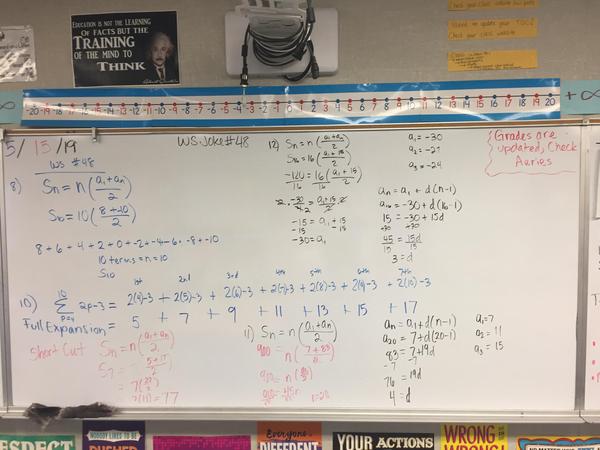 EDUCATION IS NOT THE LEARNING
OF FACTS BUT THE
TRAINING
OF THE MIND TO
THINK
-20 -19 -18 -17 -16 -15 -14 -13 -12 -11 -10 -9 -8 -7 -6 -5 -4 -3 -2 -1 0 1 2 3 4 5 6 7 8 9 10 11 12 13 14 15 16 17 18 19 20
+∞
5/15/19
WS #48
8) Sn = n((a₁+an)/2)
S₁₀ = 10((8+-10)/2)
8+6+4+2+0+-2+-4+-6+-8+-10
10 terms = n = 10
S₁₀
WS. Joke #48
12) Sn = n((a₁+an)/2)
S₁₆ = 16((a₁+15)/2)
-120/16 = 16/16((a₁+15)/2)
-15 = a₁+15
-15 -15
-30 = a₁
a₁ = -30
a₂ = -27
a₃ = -24
an = a₁ + d(n-1)
a₁₆ = -30+d(16-1)
15 = -30+15d
+30 +30
45/15 = 15d/15
3 = d
Grades are
updated, Check
Aeries
1st 2nd 3rd 4th 5th 6th 7th
10) 10 Σ P=4 2p-3 = 2(4)-3 + 2(5)-3 + 2(6)-3 + 2(7)-3 + 2(8)-3 + 2(9)-3 + 2(10)-3
Full Expansion = 5 + 7 + 9 + 11 + 13 + 15 + 17
Short Cut
Sn = n((a₁+an)/2)
S₇ = 7((5+17)/2)
= 7(22/2)
= 7(11) = 77
11) Sn = n((a₁+an)/2)
900 = n((7+83)/2)
n=20
an = a₁+d(n-1)
a₂₀ = 7+d(20-1)
83 = 7+19d
-7 -7
76 = 19d
4 = d
a₁=7
a₂ = 11
a₃ = 15
RESPECT
NOBODY LIKES TO BE
PUSHED
Everyone is
DIFFERENT
YOUR ACTIONS
WRONG IS
WRONG